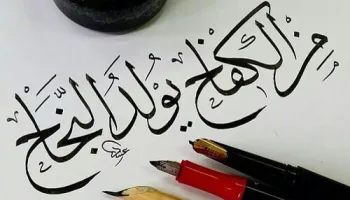 من الكفاح يولد النجاح